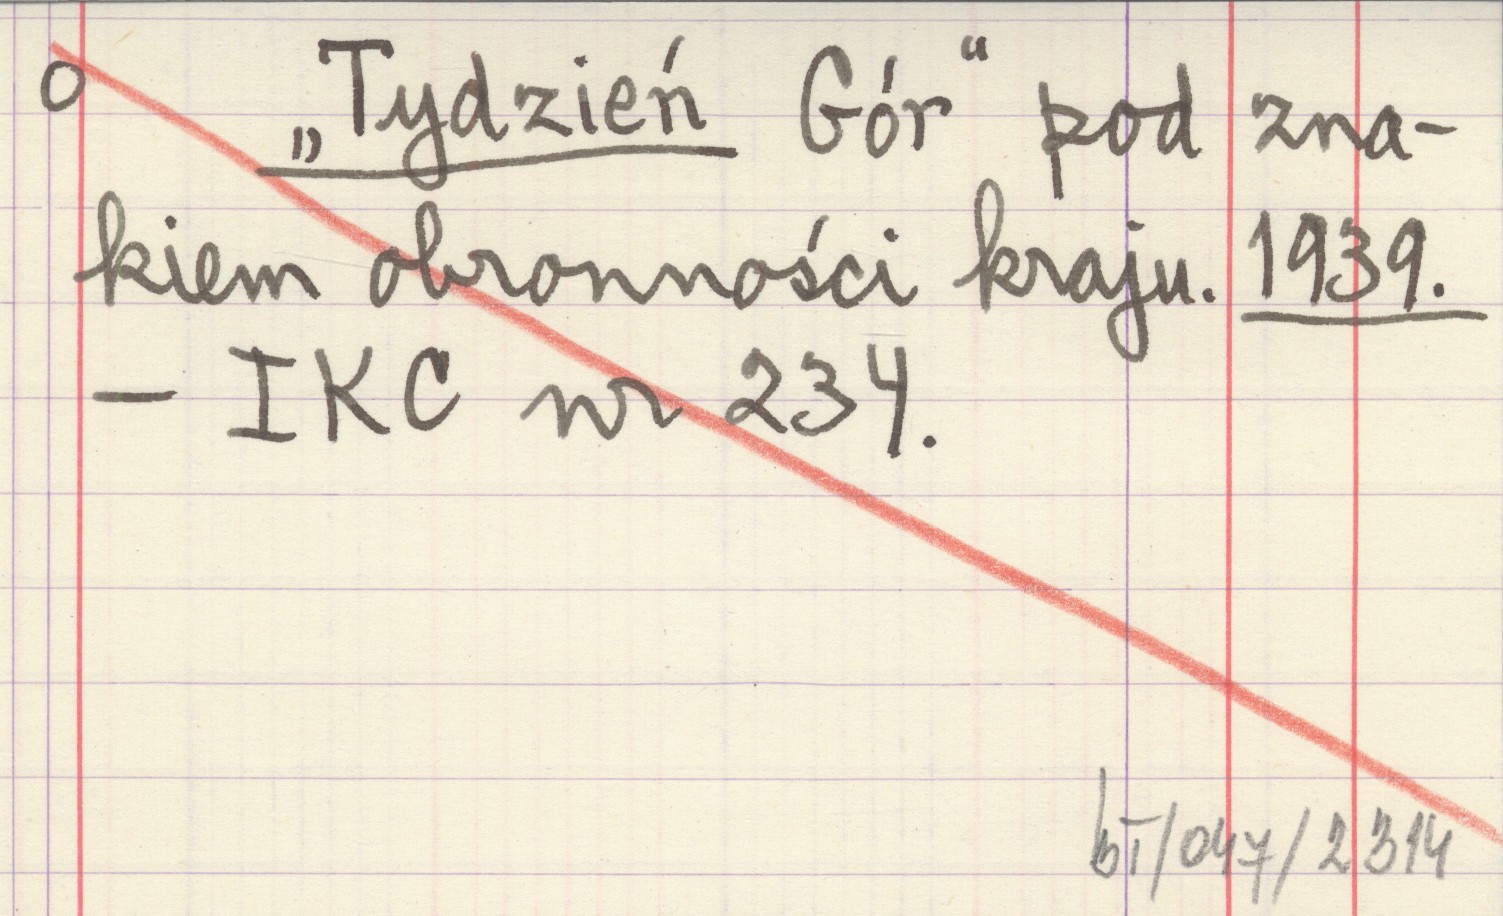 O „Tydzień Gór“ pod zna-
kiem obronności kraju. 1939.
— IKC nr 234.
bT/047/2314